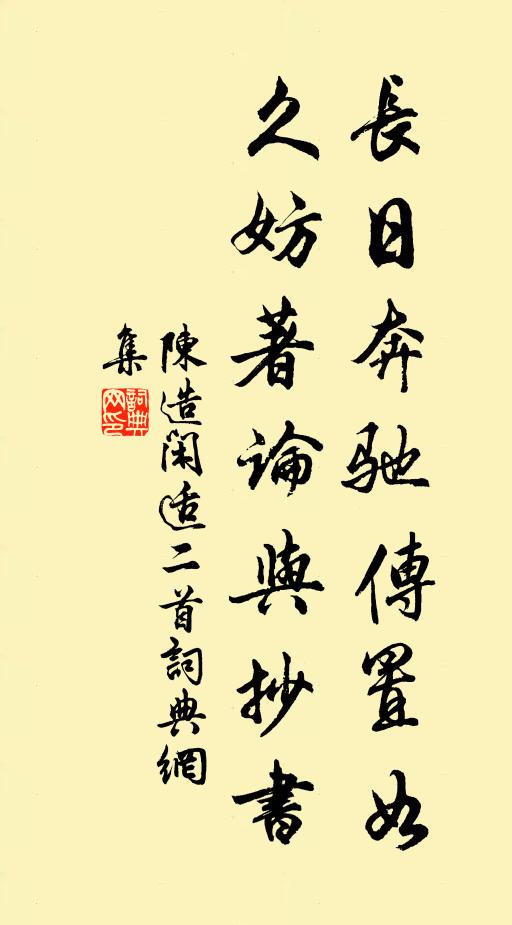 長日奔馳傳置如
久妨著論與抄書
陳造閑適二首詞典網
集
詞典
网印